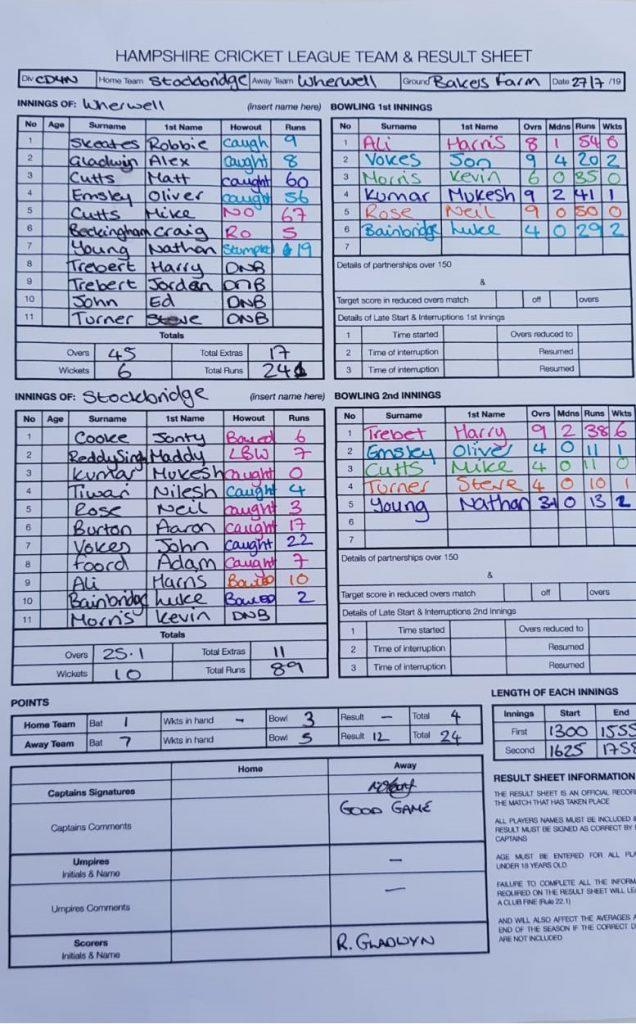 HAMPSHIRE CRICKET LEAGUE TEAM & RESULT SHEET
Div CD4N Home Team Stockbridge Away Team Wherwell Ground Bakers Farm Date 27/7 /19
INNINGS OF: Wherwell (insert name here)
No Age Surname 1st Name Howout Runs
1 Skeates Robbie Caugh 9
2 Gladwin Alex Caught 8
3 Cutts Matt caught 60
4 Emsley Oliver caught 56
5 Cutts Mike NO 67
6 Beckingham Craig Ro 5
7 Young Nathan Stumped 19
8 Trebert Harry DNB
9 Trebert Jordan DNB
10 John Ed DNB
11 Turner Steve DNB
Totals
Overs 45 Total Extras 17
Wickets 6 Total Runs 241
BOWLING 1ST INNINGS
Surname 1st Name Ovrs Mdns Runs Wkts
1 Ali Harris 8 1 54 0
2 Vokes Jon 9 4 20 2
3 Morris Kevin 6 0 35 0
4 Kumar Mukesh 9 2 41 1
5 Rose Neil 9 0 50 0
6 Bainbridge Luke 4 0 29 2
7
Details of partnerships over 150
&
Target score in reduced overs match off overs
Details of Late Start & Interruptions 1st Innings
1 Time started Overs reduced to
2 Time of interruption Resumed
3 Time of interruption Resumed
INNINGS OF: Stockbridge (insert name here)
No Age Surname 1st Name Howout Runs
1 Cooke Jonty Bowled 6
2 ReddySing Maddy LBW 7
3 Kumar Mukesh Caught 0
4 Tiwari Nilesh Caught 4
5 Rose Neil caught 3
6 Burton Aaron Caught 17
7 Vokes John Caught 22
8 Foord Adam Caught 7
9 Ali Harris Bowled 10
10 Bainbridge Luke Bowed 2
11 Morris Kevin DNB
Totals
Overs 25.1 Total Extras 11
Wickets 10 Total Runs 89
BOWLING 2ND INNINGS
Surname 1st Name Ovrs Mdns Runs Wkts
1 Trebet Harry 9 2 38 6
2 Emsley Oliver 4 0 11 1
3 Cutts Mike 4 0 11 0
4 Turner Steve 4 0 10 1
5 Young Nathan 0 13 2
6
7
Details of partnerships over 150
&
Target score in reduced overs match off overs
Details of Late Start & Interruptions 2nd Innings
1 Time started Overs reduced to
2 Time of interruption Resumed
3 Time of interruption Resumed
POINTS
Home Team Bat 1 Wkts in hand - Bowl 3 Result - Total 4
Away Team Bat 7 Wkts in hand Bowl 5 Result 12 Total 24
LENGTH OF EACH INNINGS
Innings Start End
First 1300 1555
Second 1625 1758
Home Away
Captains Signatures
Captains Comments GOOD GAME
Umpires
Initials & Name -
Umpires Comments -
Scorers
Initials & Name R. GLADWYN
RESULT SHEET INFORMATION
THE RESULT SHEET IS AN OFFICIAL RECOR
THE MATCH THAT HAS TAKEN PLACE
ALL PLAYERS NAMES MUST BE INCLUDED &
RESULT MUST BE SIGNED AS CORRECT BY
CAPTAINS
AGE MUST BE ENTERED FOR ALL PLA
UNDER 18 YEARS OLD
FAILURE TO COMPLETE ALL THE INFORMA
REQUIRED ON THE RESULT SHEET WILL LEA
A CLUB FINE (Rule 22.1)
AND WILL ALSO AFFECT THE AVERAGES A
END OF THE SEASON IF THE CORRECT D
ARE NOT INCLUDED